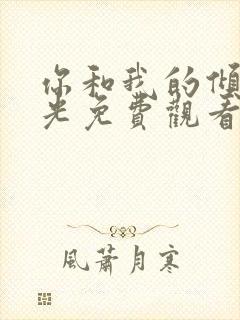 你和我的傾
光免費觀看
風蕭月寒